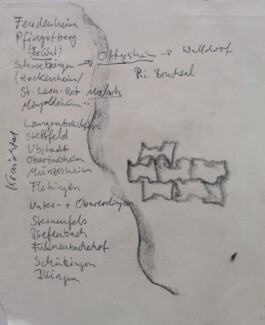 Feudenheim
Pfingstberg
(Brühl)
Schwetzingen → Oftersheim → Walldorf
(Hockenheim)
Ri. Bruchsal
St. Leon-Rot Malsch
Langenbrücken
Stettfeld
Ubstadt
Oberöwisheim
Münzesheim
Flehingen
Unter- + Oberderdingen
Sternenfels
Diefenbach
Füllmenbacherhof
Schützingen
Illingen
Kraichtal